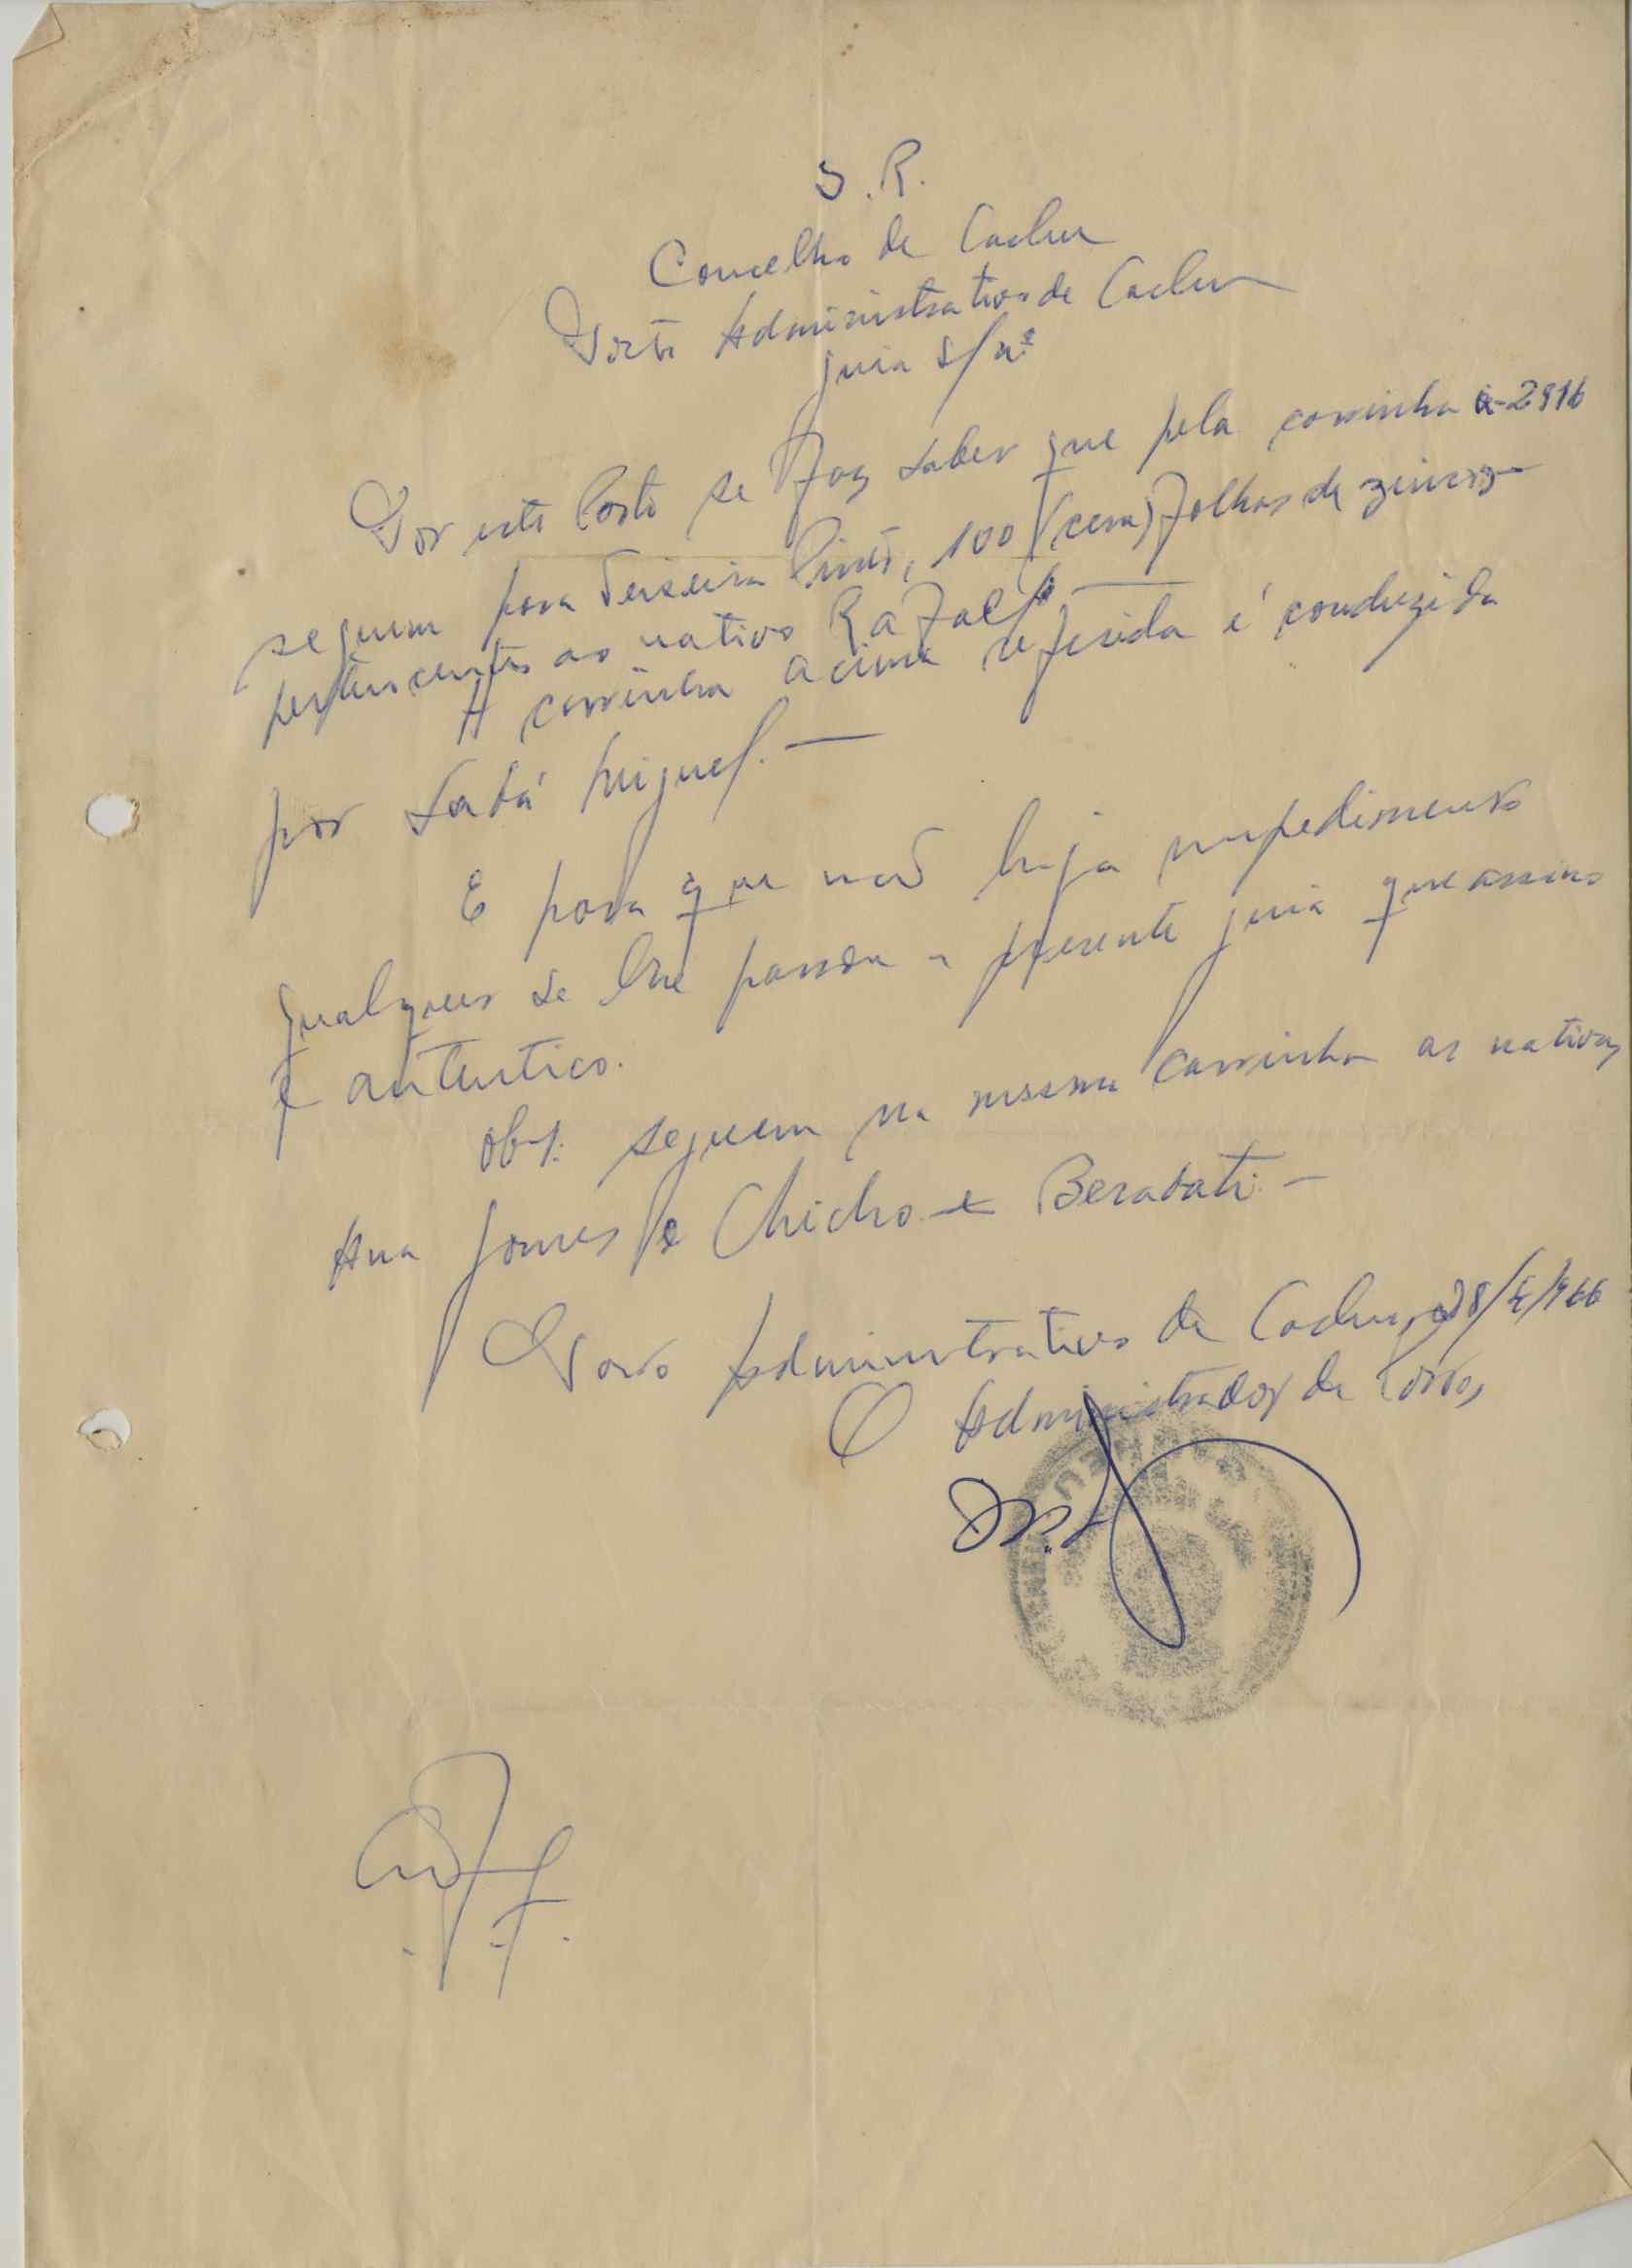 S. R.
Concelho de Cacheu
Posto Administrativo de Cacheu
guia s/nº
Por este Posto se faz saber que pela carrinha G-2916
seguem para Teixeira Pinto, 100 (cem) folhas de zinco
pertencentes ao nativo Rafael.
A carrinha acima referida é conduzida
por Sabá Miguel.
E para que não haja impedimento
qualquer se lhe passou a presente guia que assino
e autentico.
Obs: seguem na mesma carrinha as nativas
Ana Gomes e Chicho e Beradati
Posto Administrativo de Cacheu, 28/5/966
O Administrador de Posto,